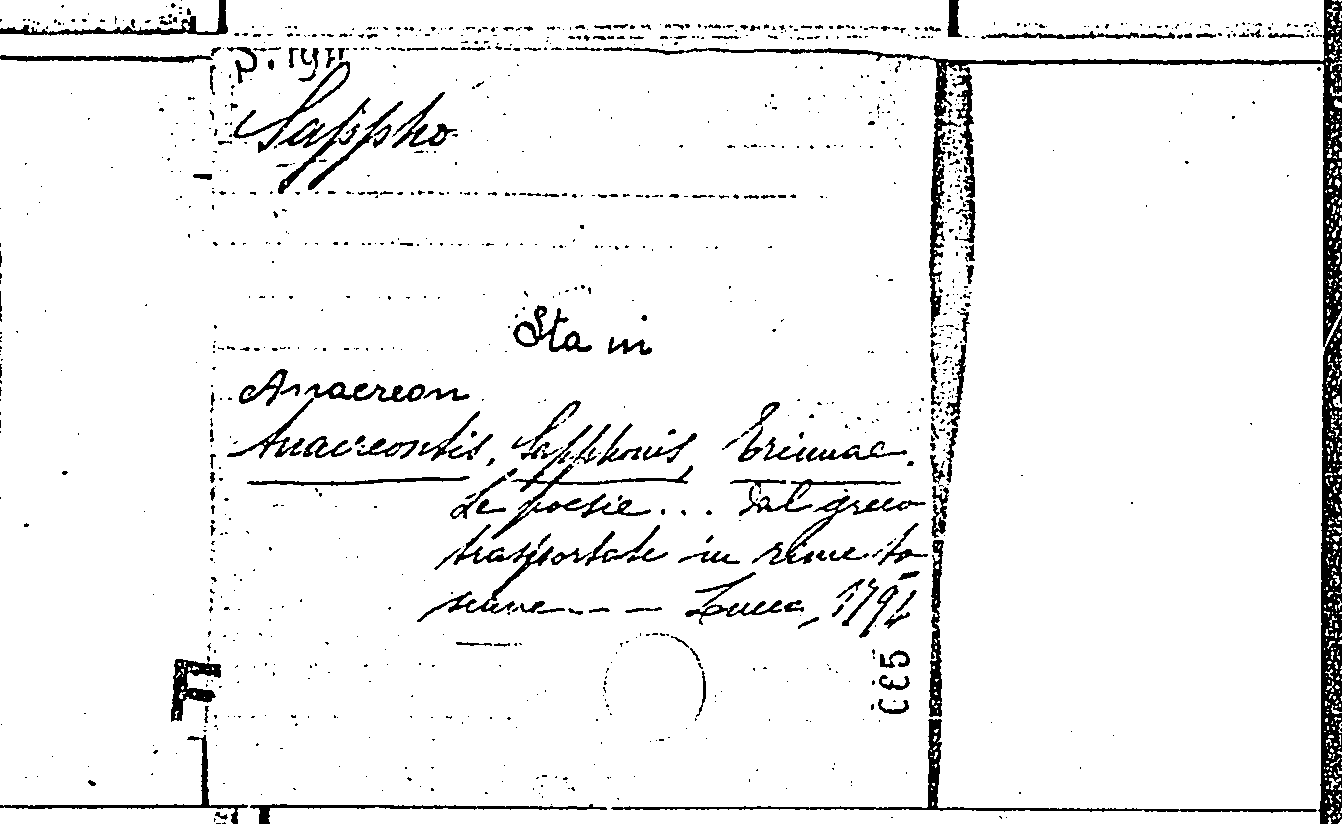 Sappho
Sta in
Anacreon
Anacreontis, Sapphonis, Erinnae.
Le poesie... dal greco
trasportate in rime to
scane --- Lucca, 1794